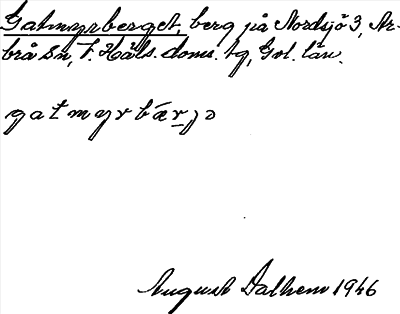 Gatmyrberget, berg på Nordsjö 3, Ar-
brå sn, V. Häls. doms. tg, Gvl. län.
gatmyrbærjə
August Dalhem 1946